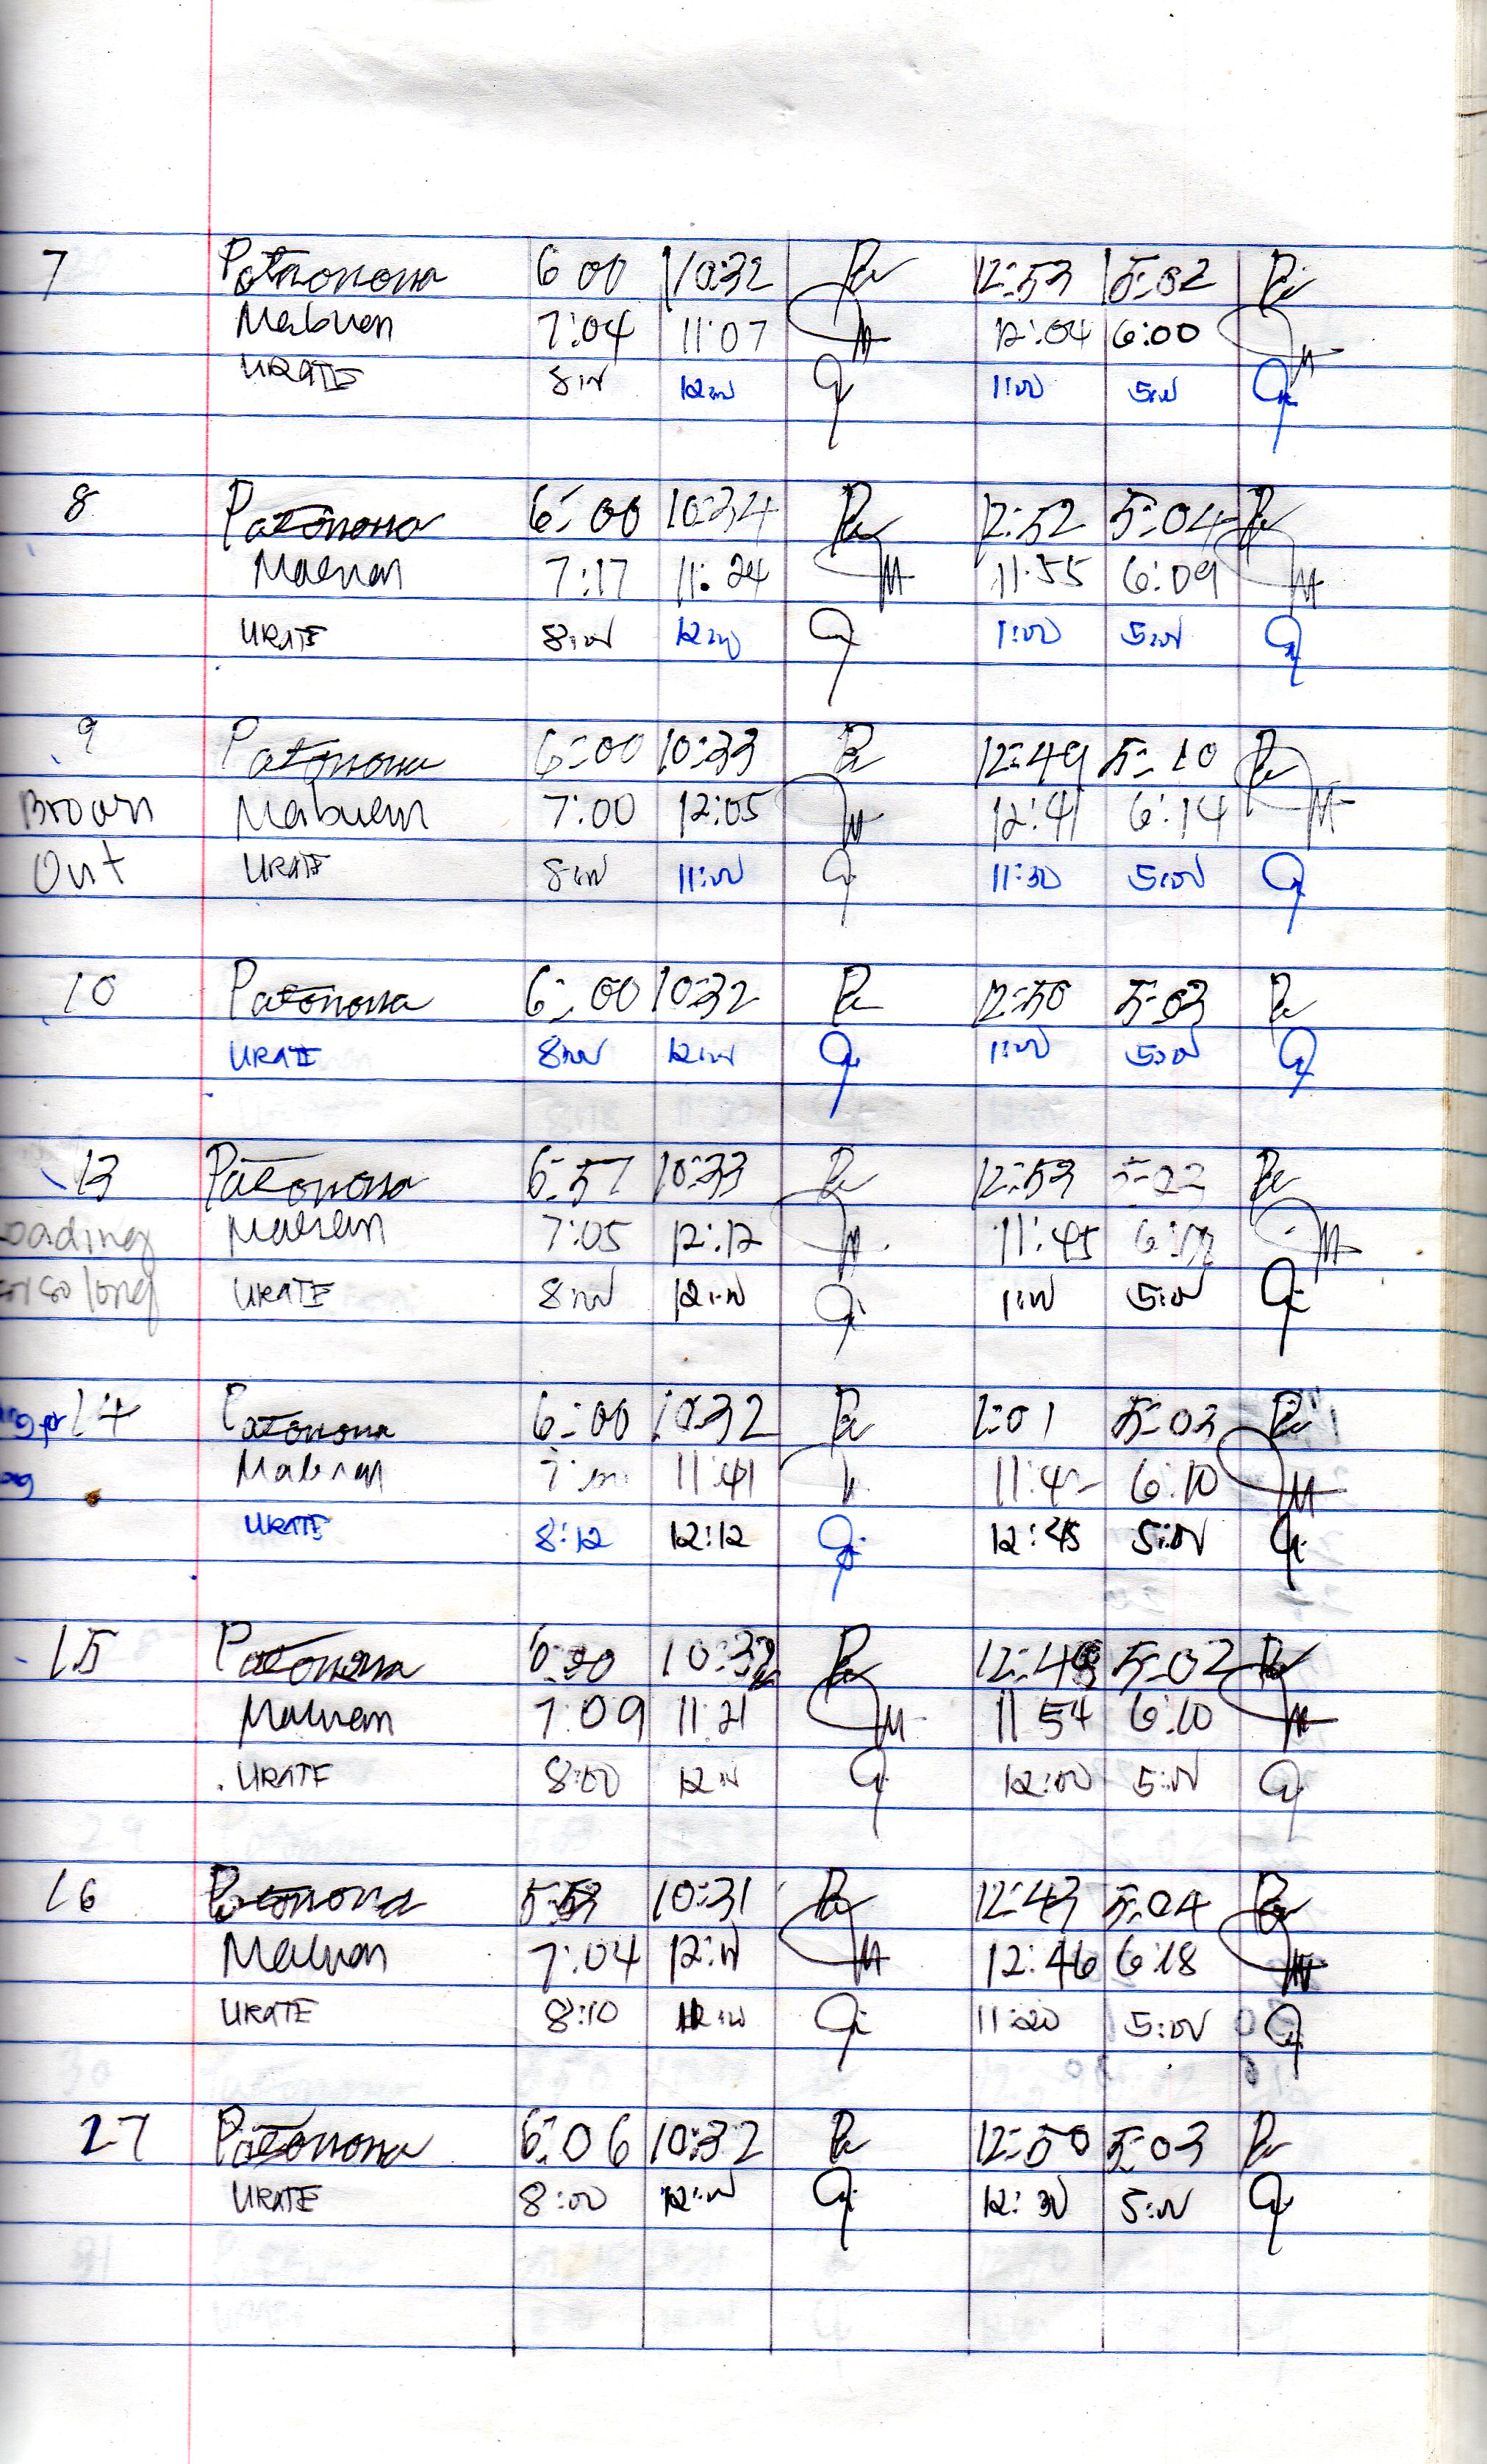 7 Patonona 6:00 10:32 12:53 5:02
Mabuen 7:04 11:07 12:04 6:00
URATE 8:00 12:00 1:00 5:00
8 Patonona 6:00 10:34 12:52 5:04
Mabuen 7:17 11:24 11:55 6:09
URATE 8:00 12:00 1:00 5:00
9 Patonona 6:00 10:33 12:49 5:10
Brown Mabuen 7:00 12:05 12:41 6:14
Out URATE 8:00 11:00 11:30 5:00
10 Patonona 6:00 10:32 12:50 5:03
URATE 8:00 12:00 1:00 5:00
13 Patonona 6:57 10:33 12:53 5:03
oading Mabuen 7:05 12:12 11:45
long URATE 8:00 12:00 1:00 5:00
14 Patonona 6:00 10:32 1:01 5:03
Mabuen 11:41 6:10
URATE 8:12 12:12 12:45 5:00
15 Patonona 6:00 10:32 5:02
Mabuen 7:09 11:21 11:54 6:10
URATE 8:00 12:00 12:00 5:00
16 Patonona 10:31 12:43 5:04
Mabuen 7:04 12:46 6:18
URATE 8:10 11:20 5:00
27 Patonona 6:06 10:32 12:50 5:03
URATE 8:00 12:00 12:30 5:00